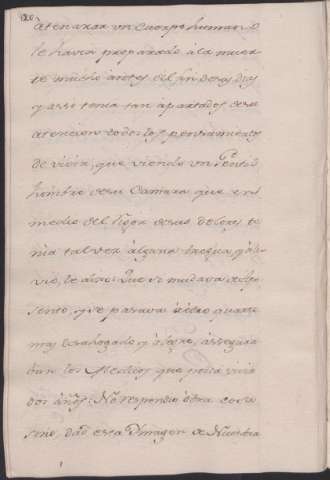 atenazar un Cuerpo humano
le havia preparado a la muer
te mucho antes del fin de sus dias
y assi tenia tan apartados de su
atencion todos los pensamientos
de vivir, que viendo un Gentil
hombre de su Camara que en
medio del rigor de sus dolores te
nia tal vez alguna tregua, y ali
vio, le dixo: Que si mudava
sento, y se pasava à otro quarto
mas desahogado y alegre, assegura
ban los Medicos que podia vivir
dos años: No respondio otra cosa
sino, dad esta Ymagen de Nuestra